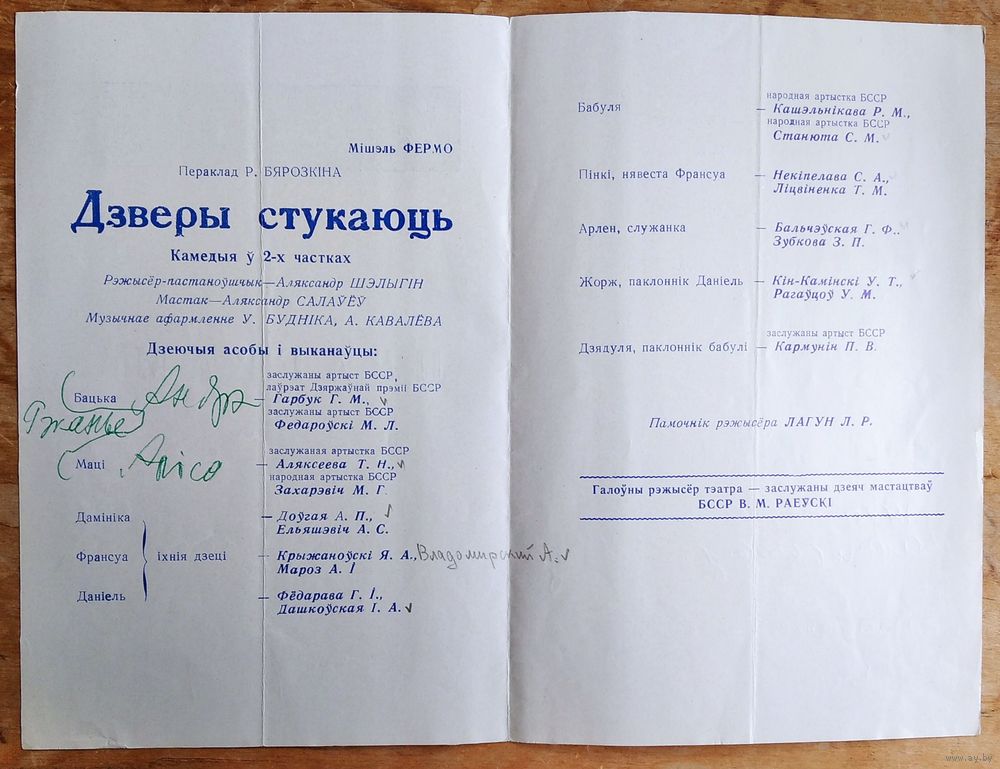 Мішэль ФЕРМО
Пераклад Р. БЯРОЗКІНА
Дзверы стукаюць
Камедыя ў 2-х частках
Рэжысёр-пастаноўшчык—Аляксандр ШЭЛЫГІН
Мастак—Аляксандр САЛАЎЁЎ
Музычнае афармленне У. БУДНІКА, А. КАВАЛЁВА
Дзеючыя асобы і выканаўцы:
заслужаны артыст БССР,
лаўрэат Дзяржаўнай прэміі БССР
Бацька — Гарбук Г. М.,
заслужаны артыст БССР
Федароўскі М. Л.
заслужаная артыстка БССР
Маці — Аляксеева Т. Н.,
народная артыстка БССР
Захарэвіч М. Г.
Дамініка — Доўгая А. П.,
Ельяшэвіч А. С.
Франсуа іхнія дзеці — Крыжаноўскі Я. А., Владомирский А.
Мароз А. І
Даніель — Фёдарава Г. І.,
Дашкоўская І. А.
народная артыстка БССР
Бабуля — Кашэльнікава Р. М.,
народная артыстка БССР
Станюта С. М.
Пінкі, нявеста Франсуа — Некіпелава С. А.,
Ліцвіненка Т. М.
Арлен, служанка — Бальчэўская Г. Ф.,
Зубкова З. П.
Жорж, паклоннік Даніель — Кін-Камінскі У. Т.,
Рагаўцоў У. М.
заслужаны артыст БССР
Дзядуля, паклоннік бабулі — Кармунін П. В.
Памочнік рэжысёра ЛАГУН Л. Р.
Галоўны рэжысёр тэатра — заслужаны дзеяч мастацтваў
БССР В. М. РАЕЎСКІ
www.ay.by